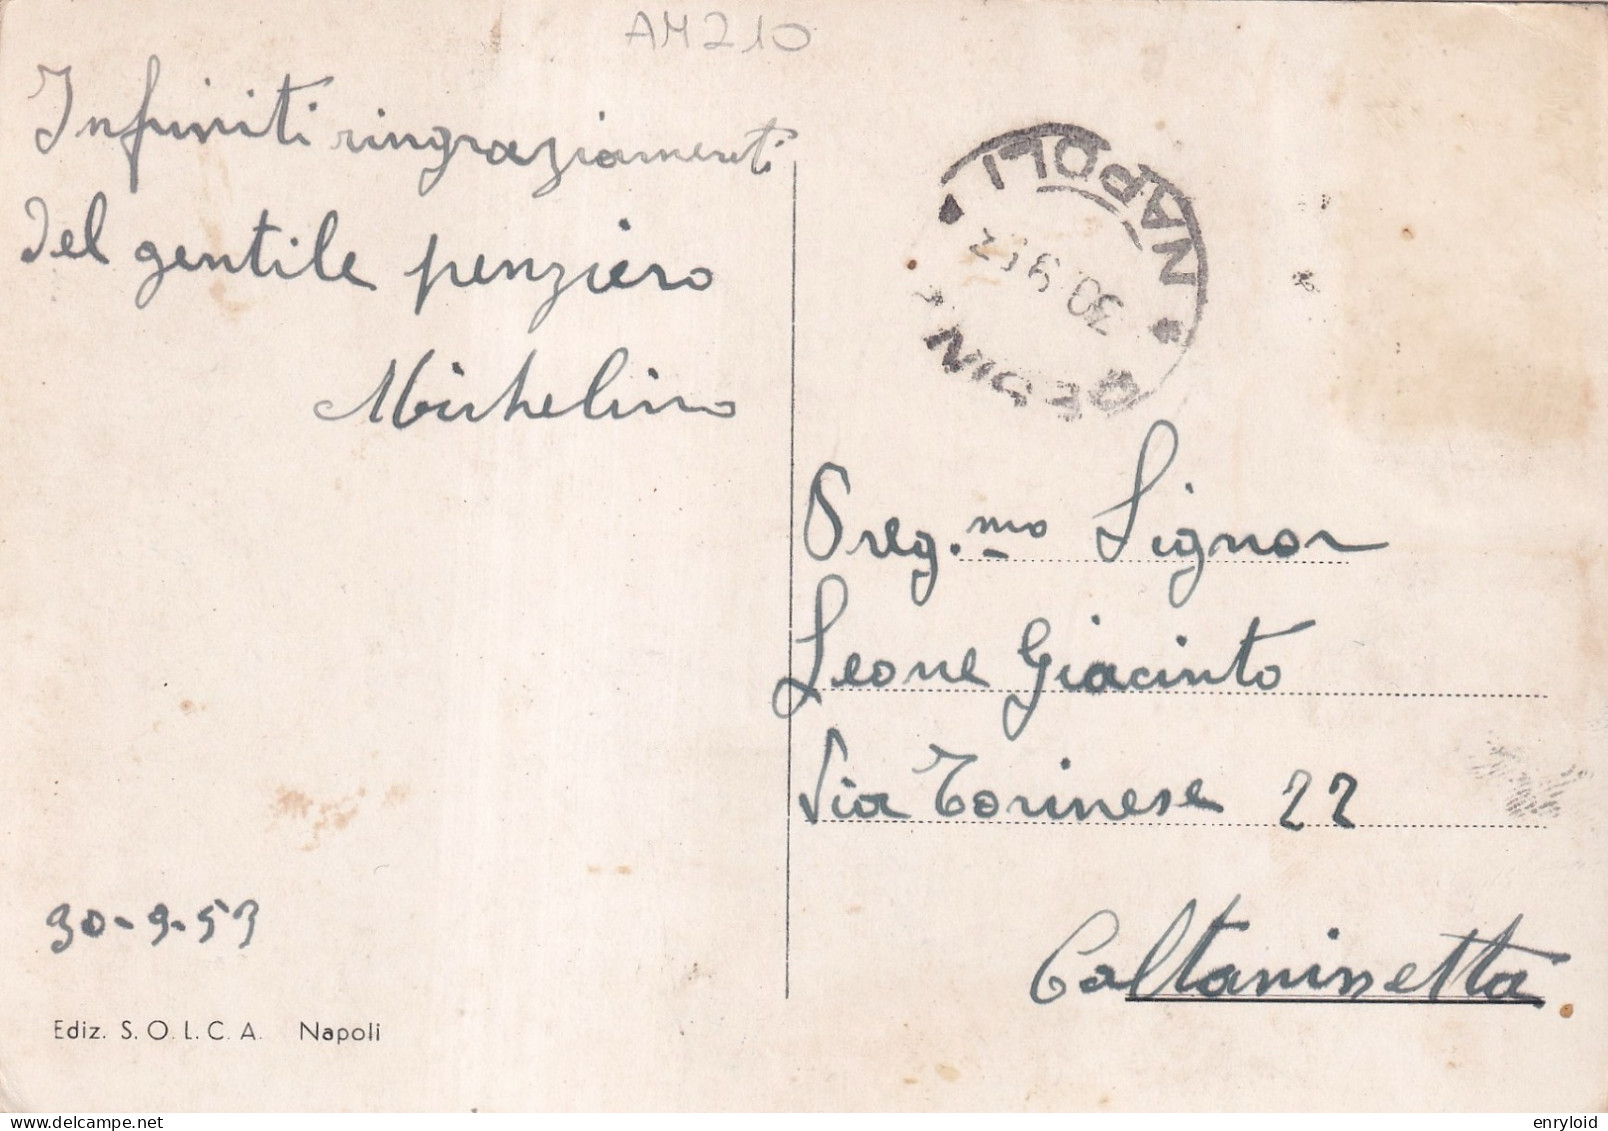 AM210
Infiniti ringraziamenti
del gentile penziero
Michelino
30-9-53
Ediz. S.O.L.C.A. Napoli
NAPOLI
30.9.53
Preg.mo Signor
Leone Giacinto
Via Torinese 22
Caltanissetta
enryloid